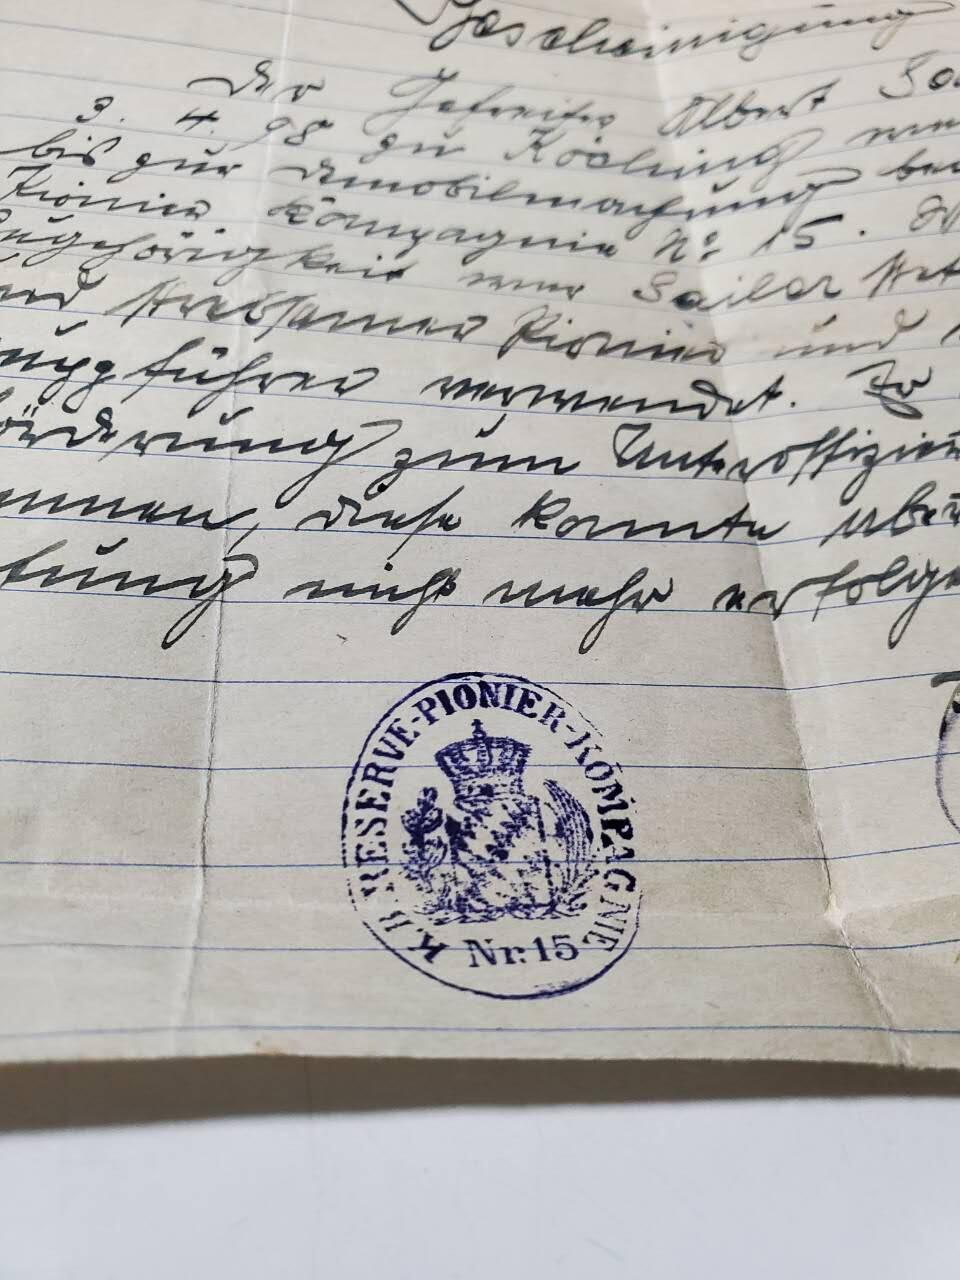 Bescheinigung
Der Gefreite Albert
3. 4. 98 zu Köching war
bis zur Demobilmachung
Pionier Kompagnie No 15.
Zugehörigkeit war Sailer
und strebsamer Pionier und
führer verwendet. Er
zum Unteroffizier
diese konnte
nicht mehr erfolgen
K.B. RESERVE-PIONIER-KOMPAGNIE
Nr. 15